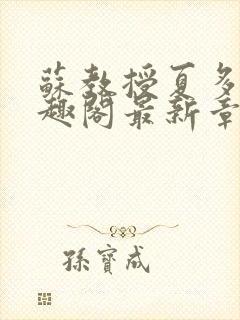 蘇教授夏多
趣閣最新章
孫寶成